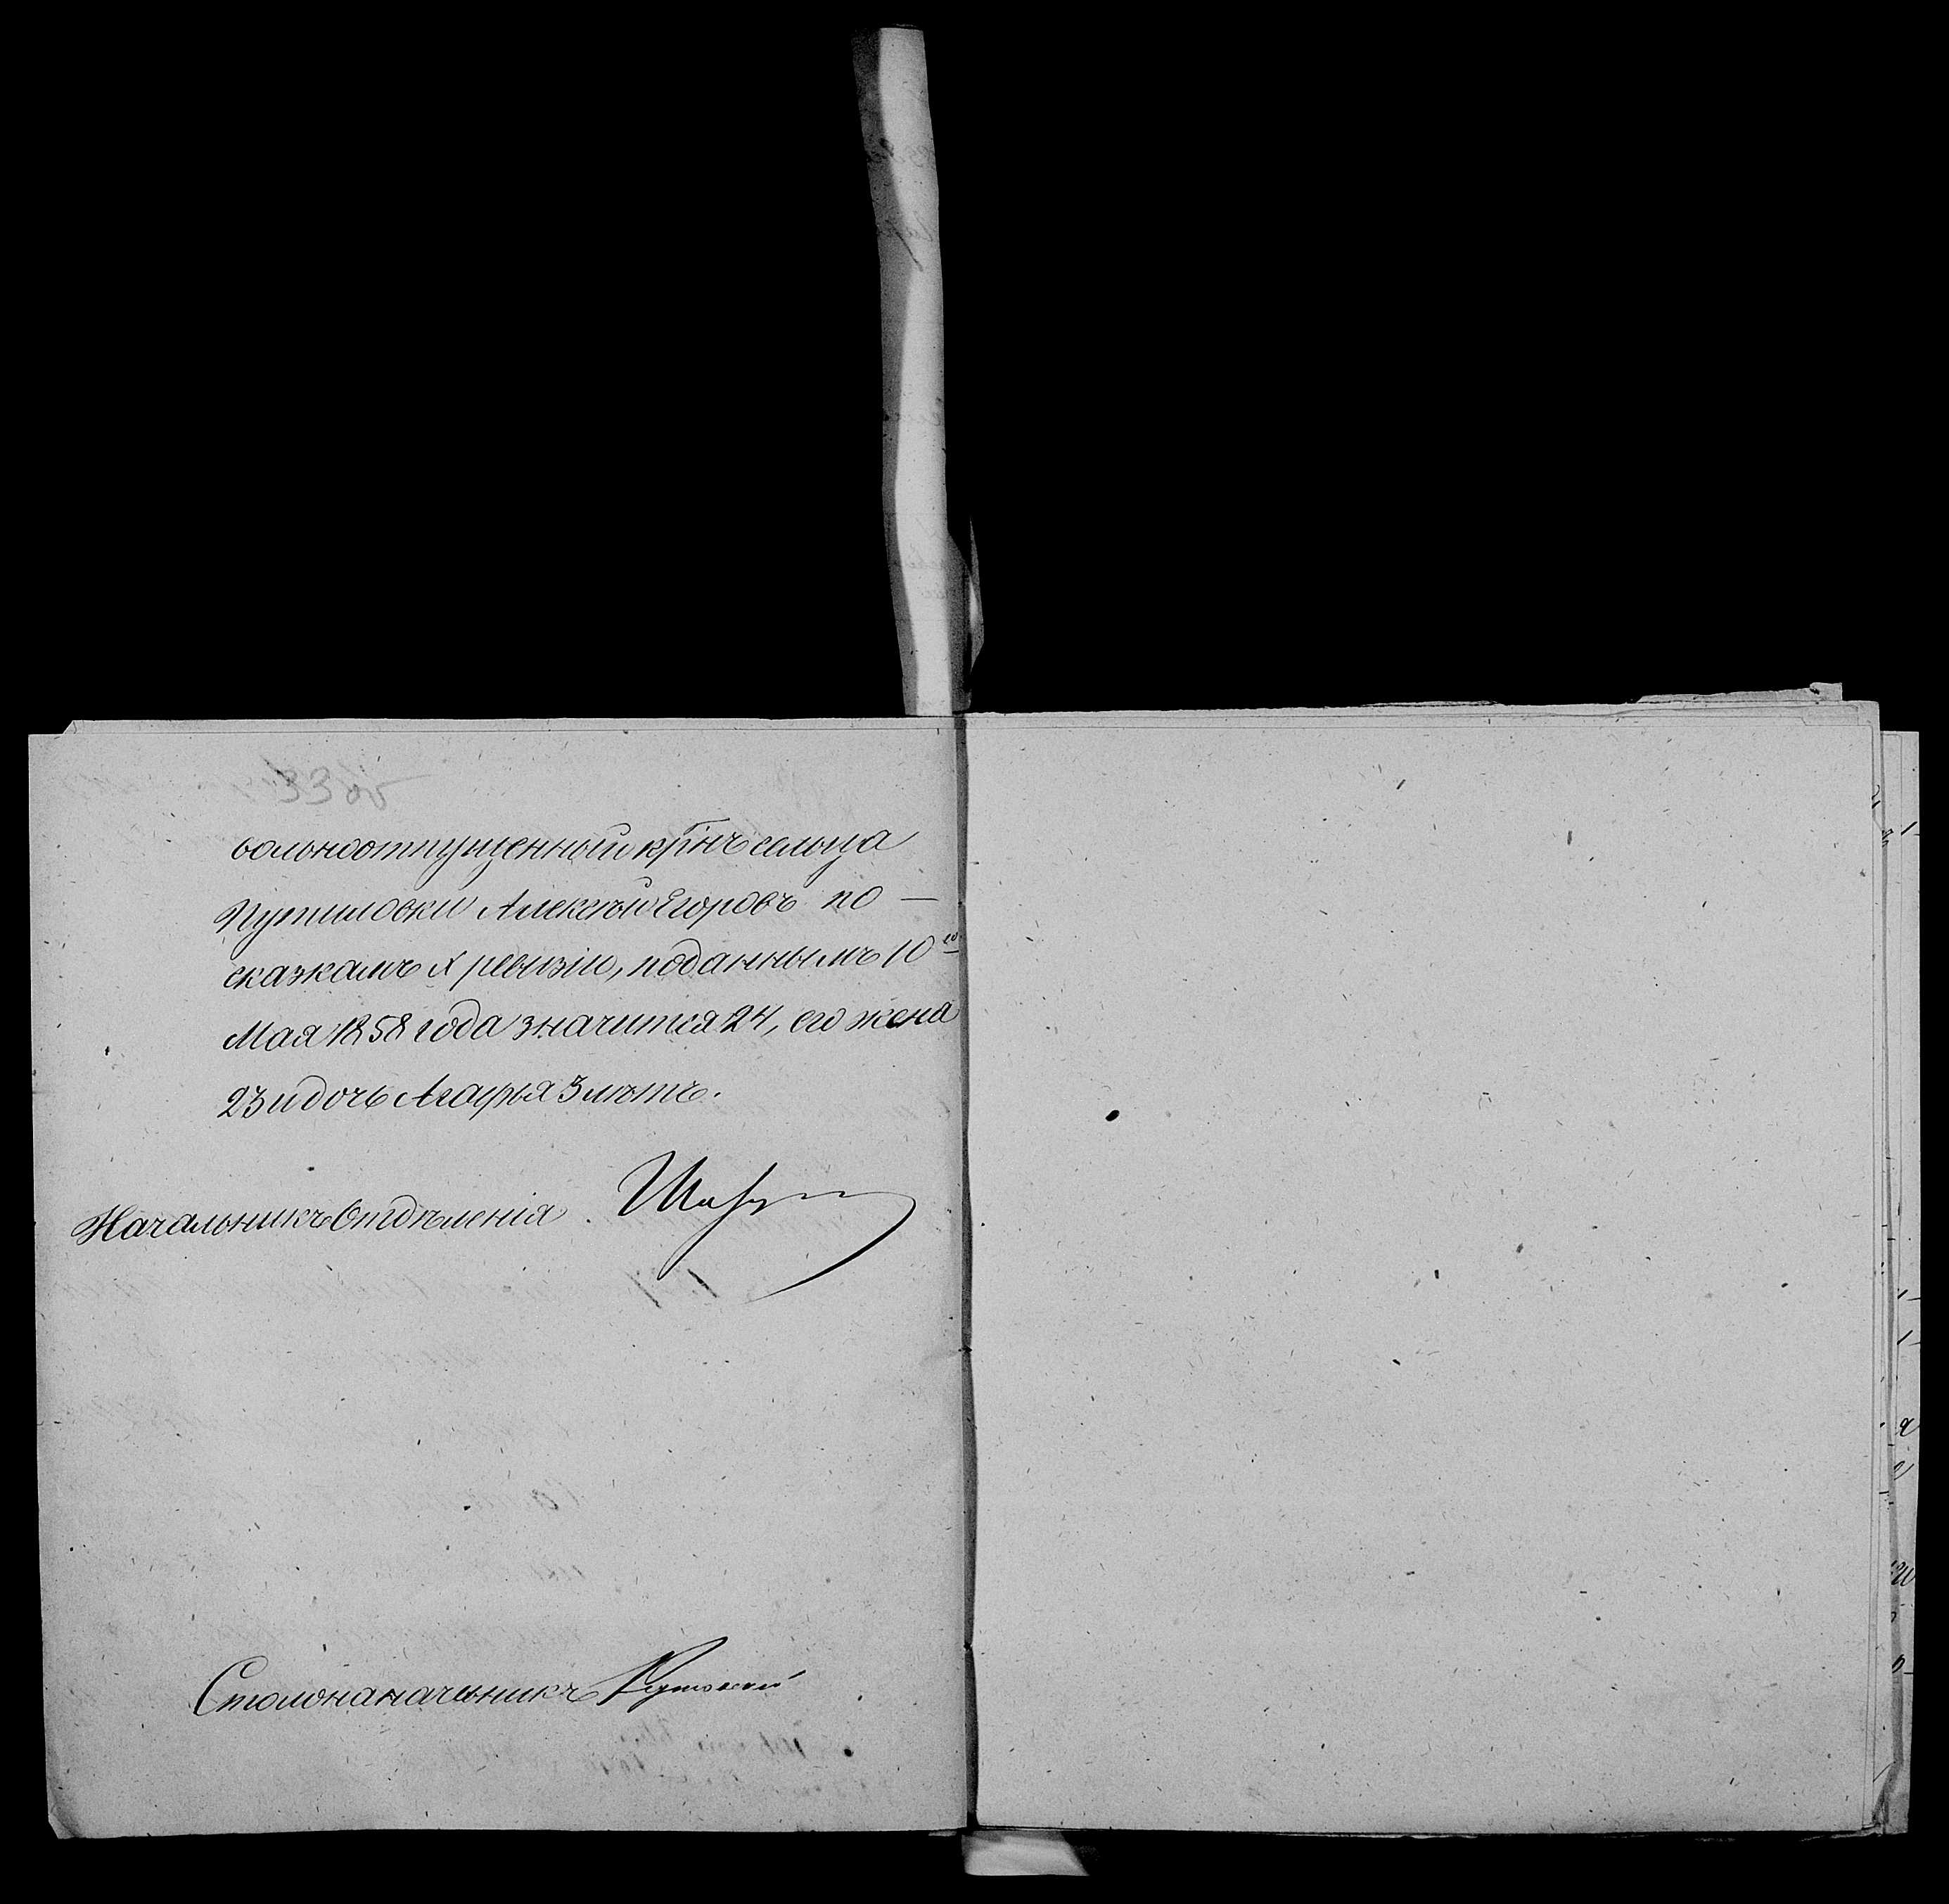 33об
вольноотпущенный крнъ сельца
Путиловки Алексѣй Егоровъ по —
сказкамъ X ревизіи, поданнымъ 10го
Мая 1858 года значится 24, его жена
23 и дочь Агафья 3 лѣтъ.
Начальникъ Отдѣленія
Столоначальникъ